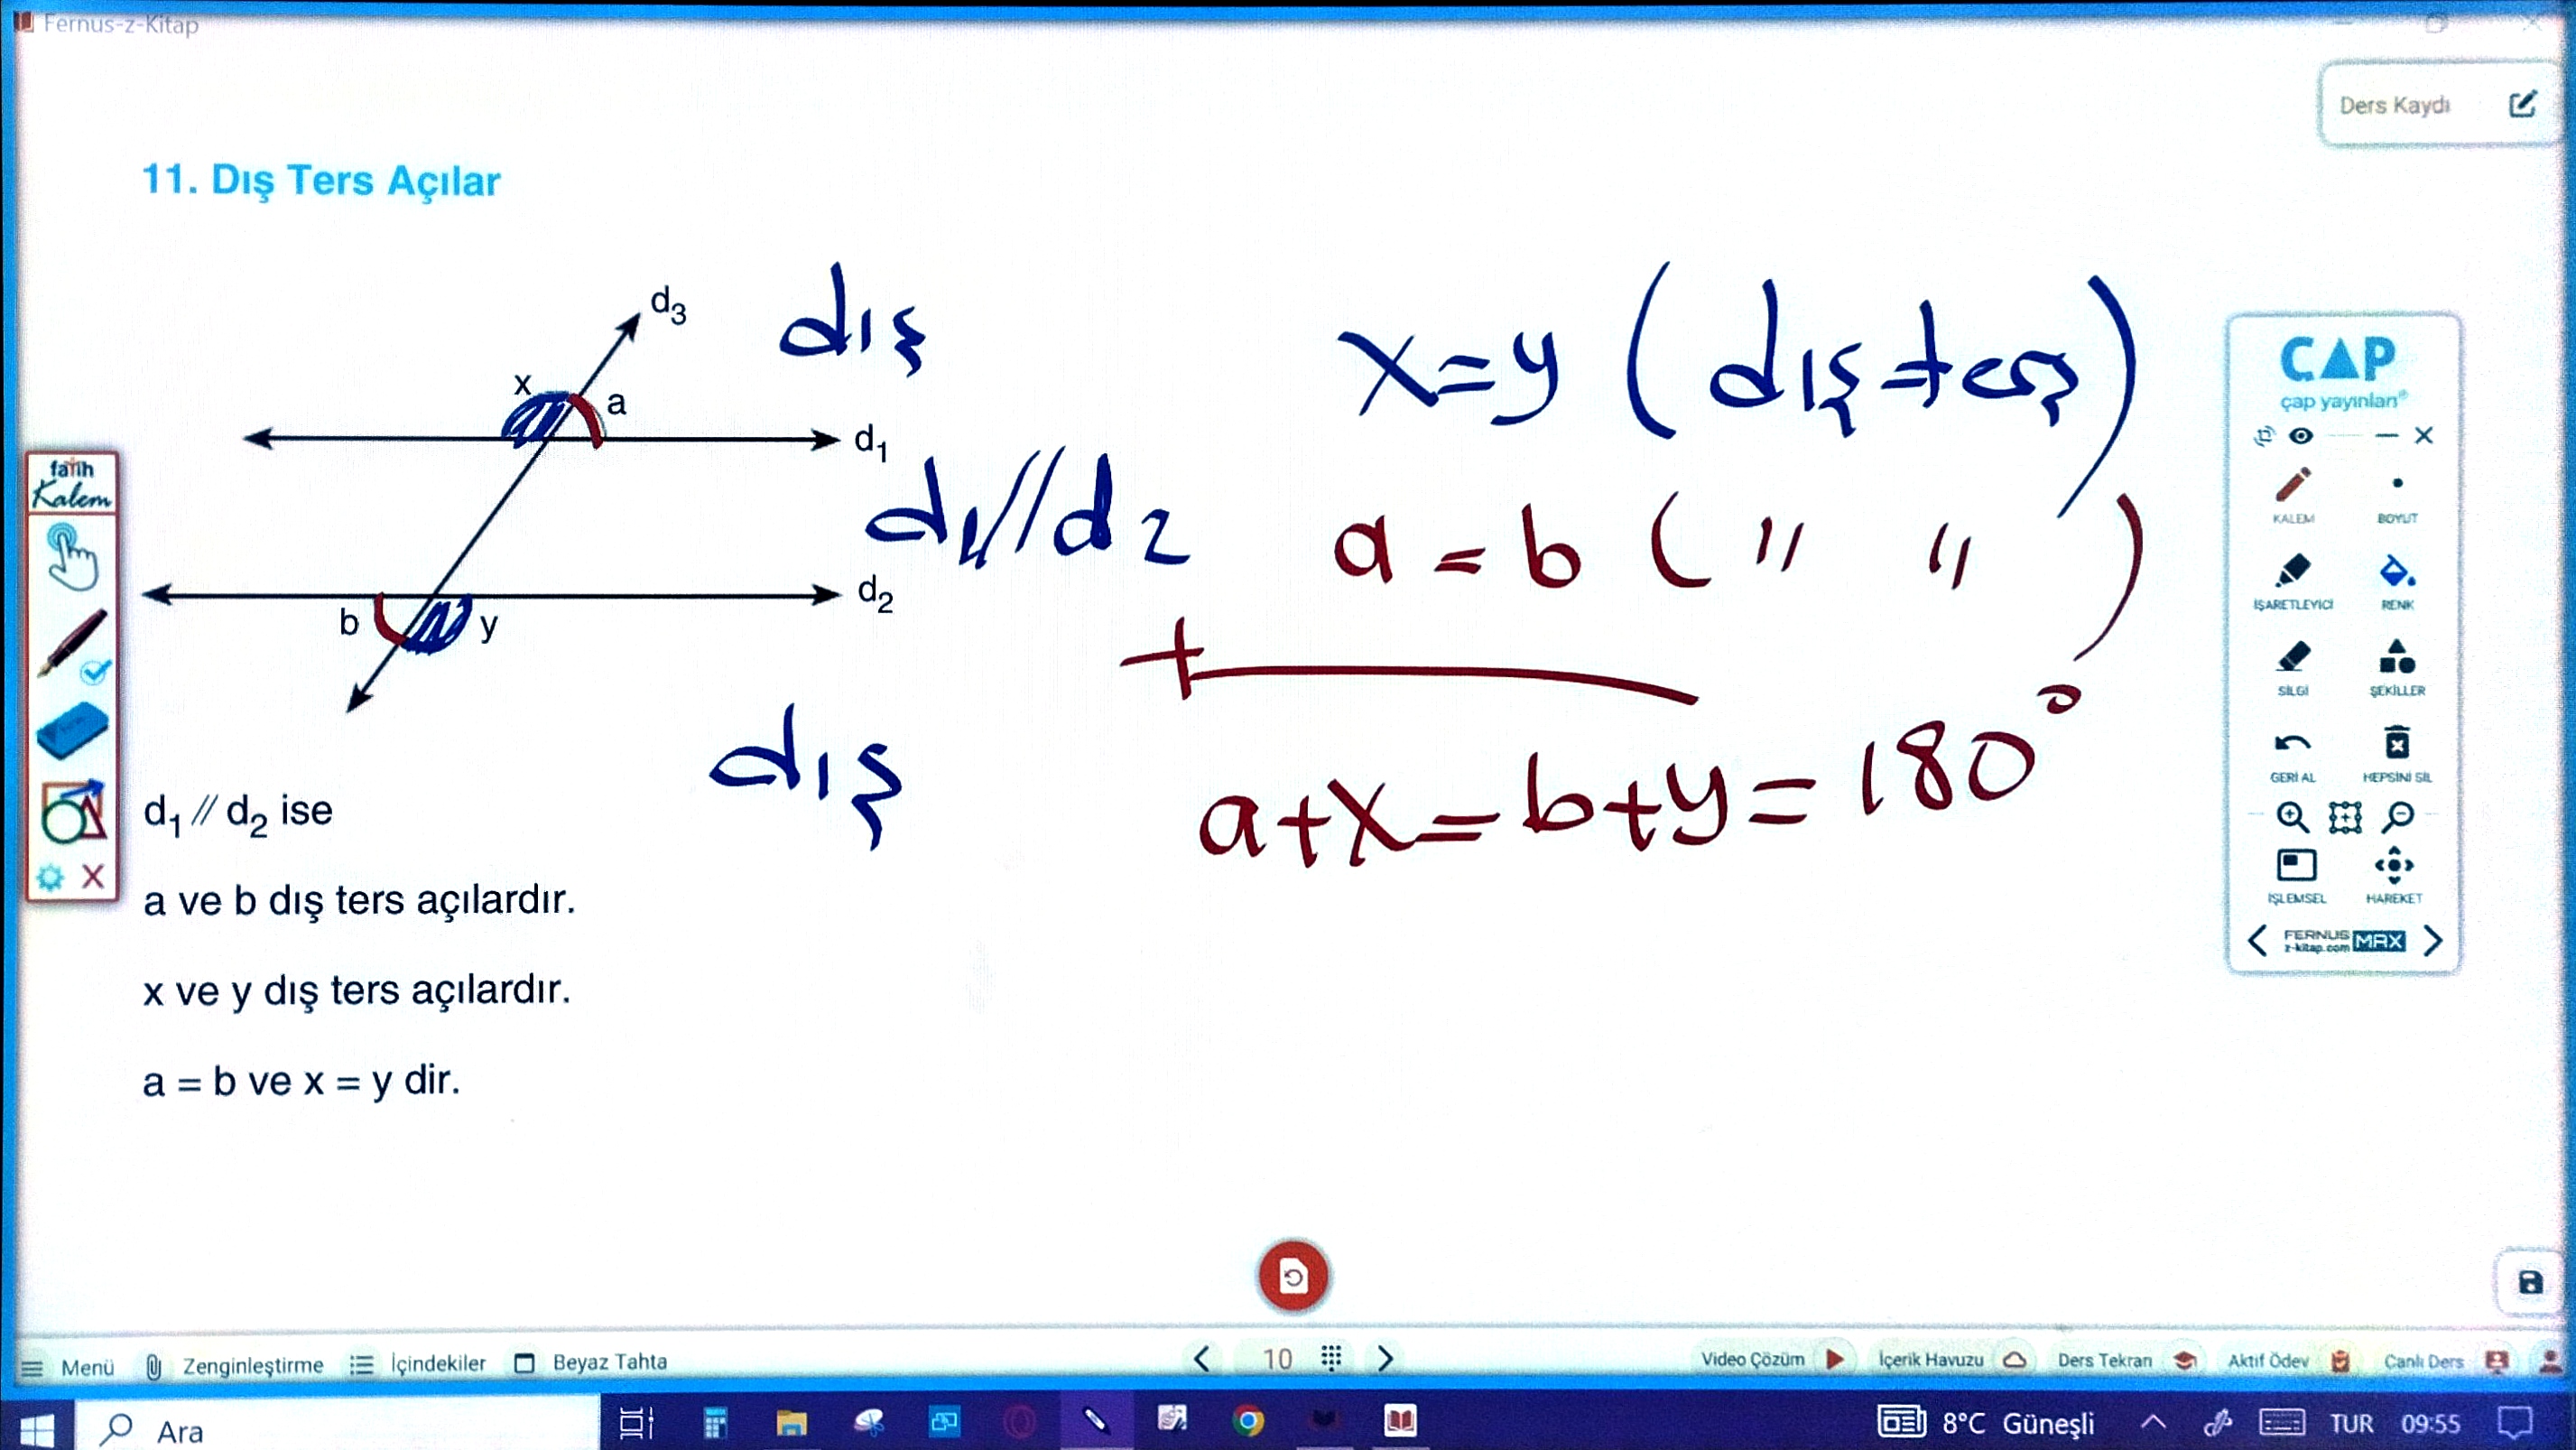 Fernus-z-Kitap
Ders Kaydı
11. Dış Ters Açılar
d3
dış
x = y (dış ters)
x
a
d1
d1 // d2
a = b ( " " )
d2
b
y
+
dış
a + x = b + y = 180°
d1 // d2 ise
a ve b dış ters açılardır.
x ve y dış ters açılardır.
a = b ve x = y dir.
fatih
Kalem
ÇAP
çap yayınları®
KALEM
BOYUT
İŞARETLEYİCİ
RENK
SİLGİ
ŞEKİLLER
GERİ AL
HEPSİNİ SİL
İŞLEMSEL
HAREKET
FERNUS
z-kitap.com
MAX
Menü
Zenginleştirme
İçindekiler
Beyaz Tahta
10
Video Çözüm
İçerik Havuzu
Ders Tekrarı
Aktif Ödev
Canlı Ders
Ara
8°C Güneşli
TUR
09:55